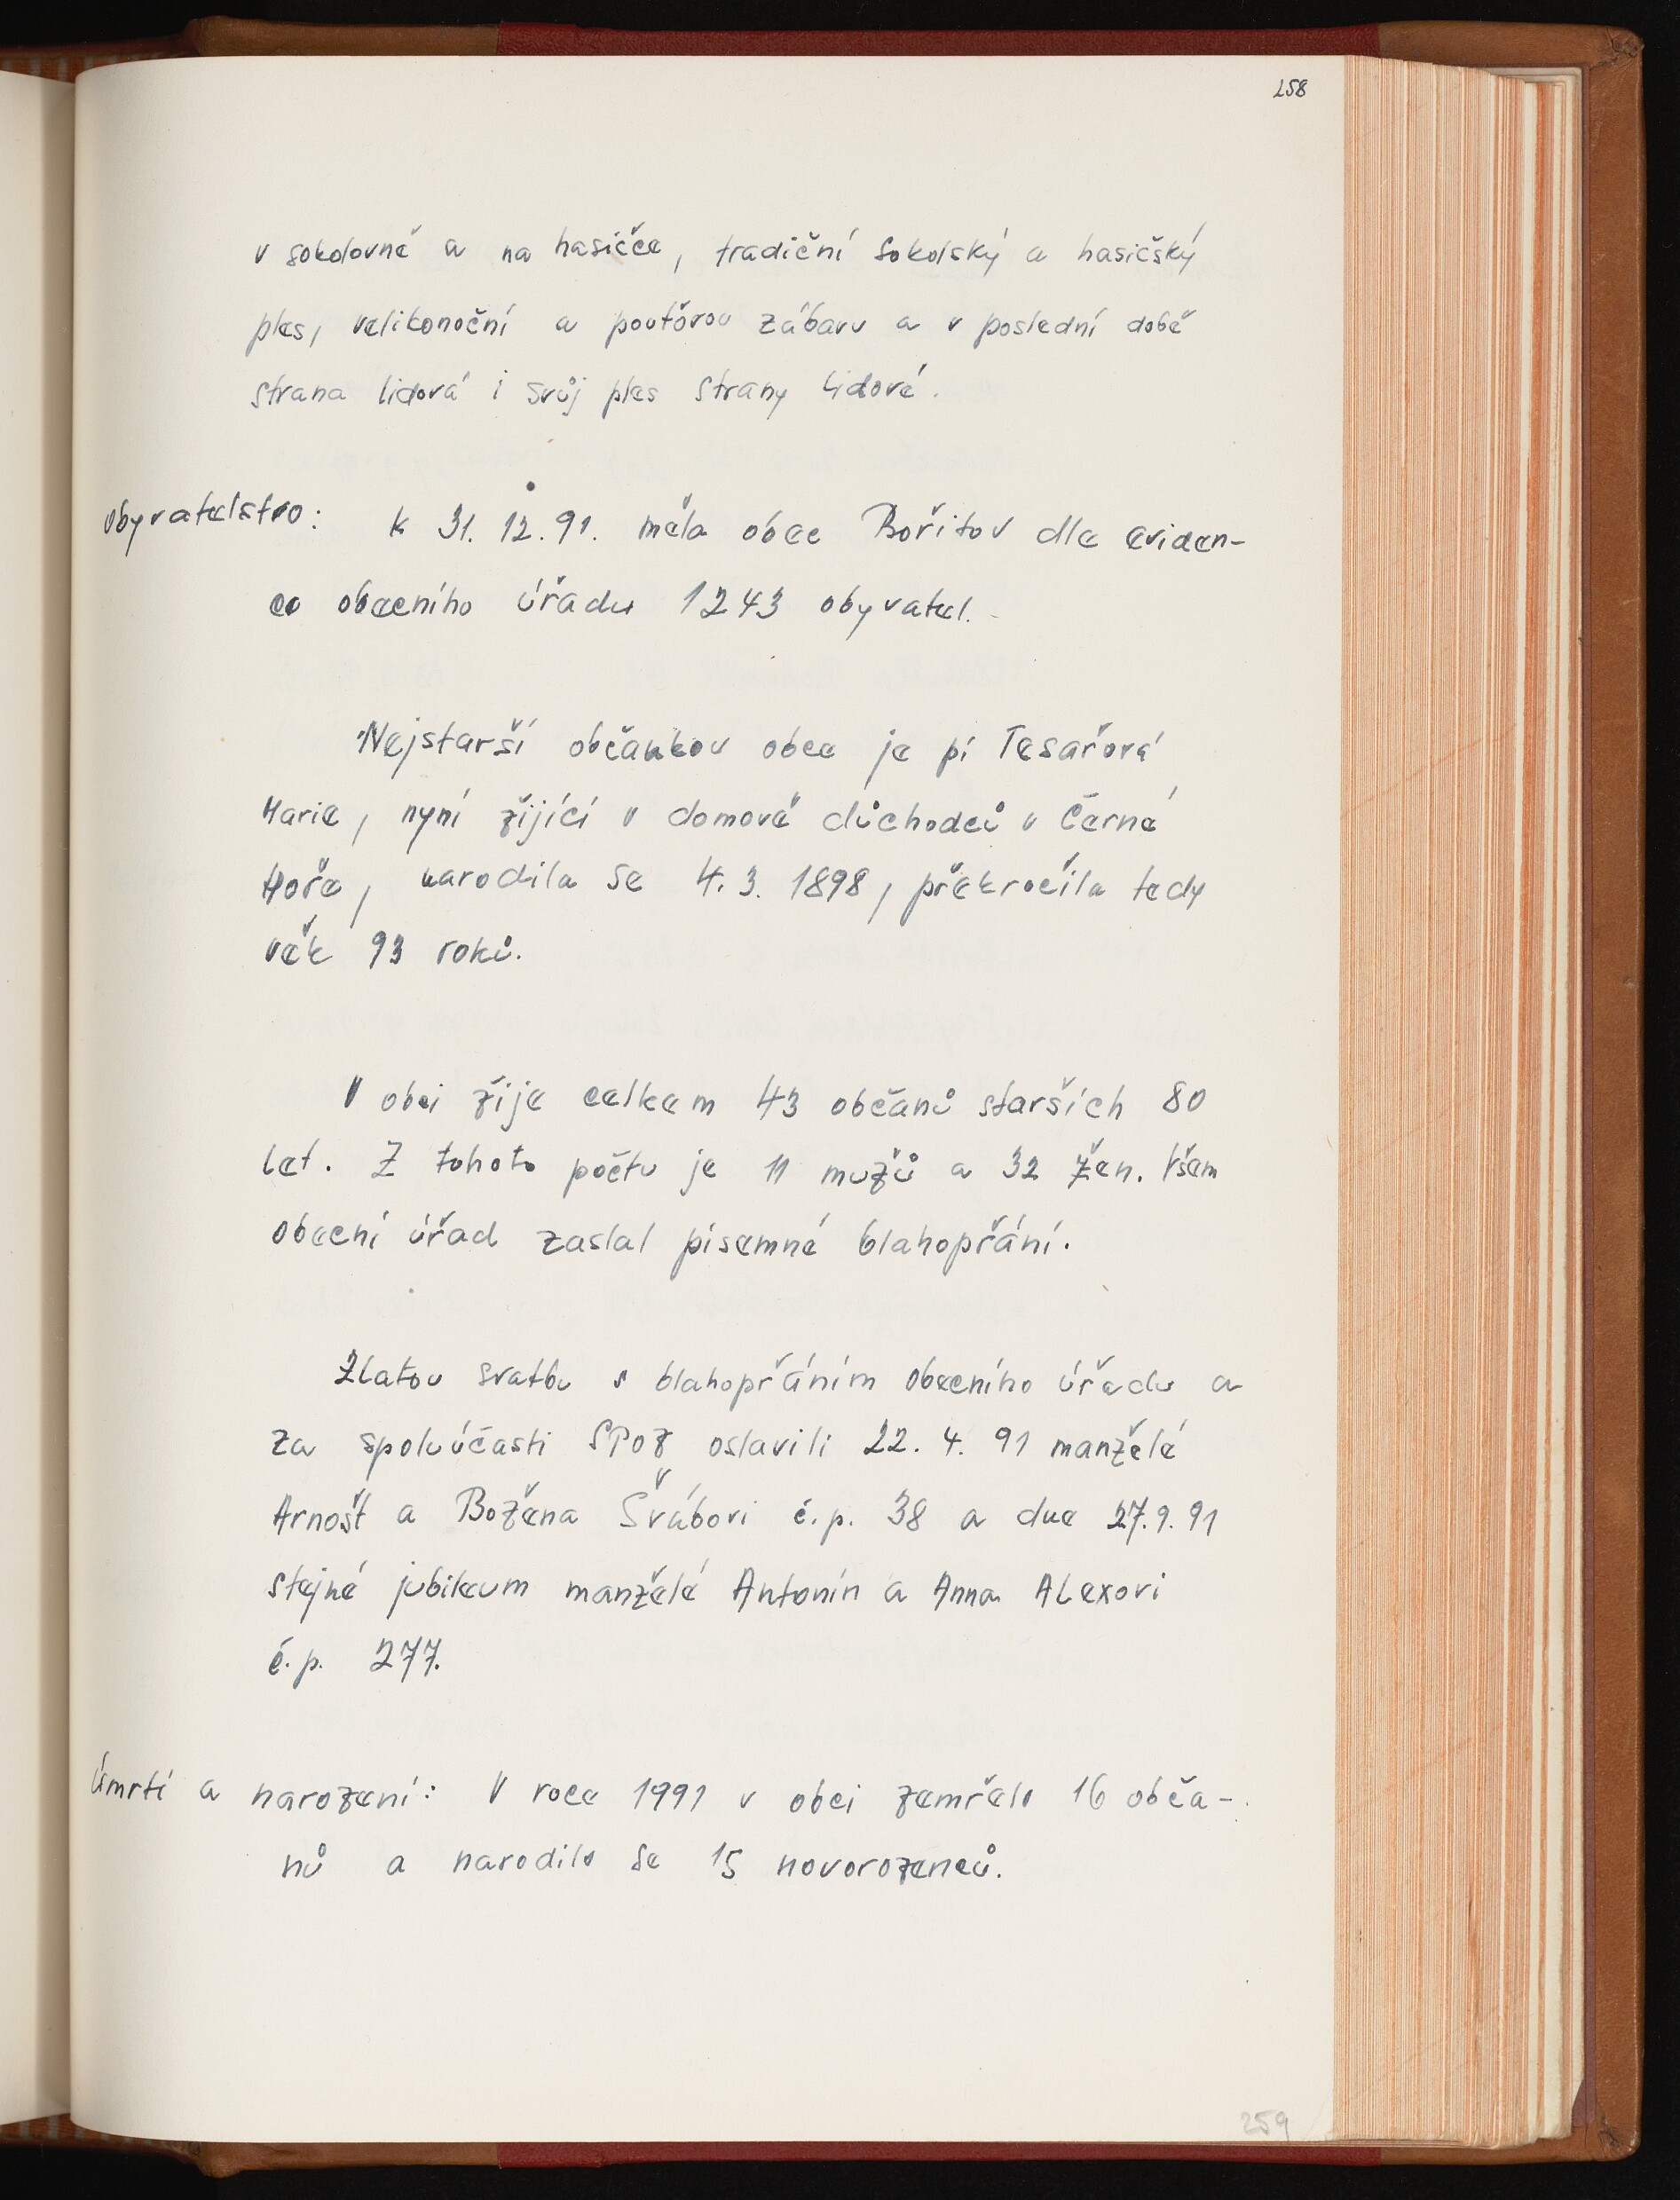 258
v sokolovně a na hasičce, tradiční sokolský a hasičský
ples, velikonoční a pouťovou zábavu a v poslední době
strana lidová i svůj ples strany lidové.
obyvatelstvo: k 31. 12. 91. měla obec Bořitov dle eviden-
ce obecního úřadu 1243 obyvatel.
Nejstarší občankou obce je pí Tesařová
Marie, nyní žijící v domově důchodců v Černé
Hoře, narodila se 4. 3. 1898, překročila tedy
věk 93 roků.
V obci žije celkem 43 občanů starších 80
let. Z tohoto počtu je 11 mužů a 32 žen. Všem
obecní úřad zaslal písemné blahopřání.
Zlatou svatbu s blahopřáním obecního úřadu a
za spoluúčasti SPOZ oslavili 22. 4. 91 manželé
Arnošt a Božena Švábovi č.p. 38 a dne 27.9.91
stejné jubileum manželé Antonín a Anna Alexovi
č.p. 277.
Úmrtí a narození: V roce 1991 v obci zemřelo 16 obča-
nů a narodilo se 15 novorozenců.
259